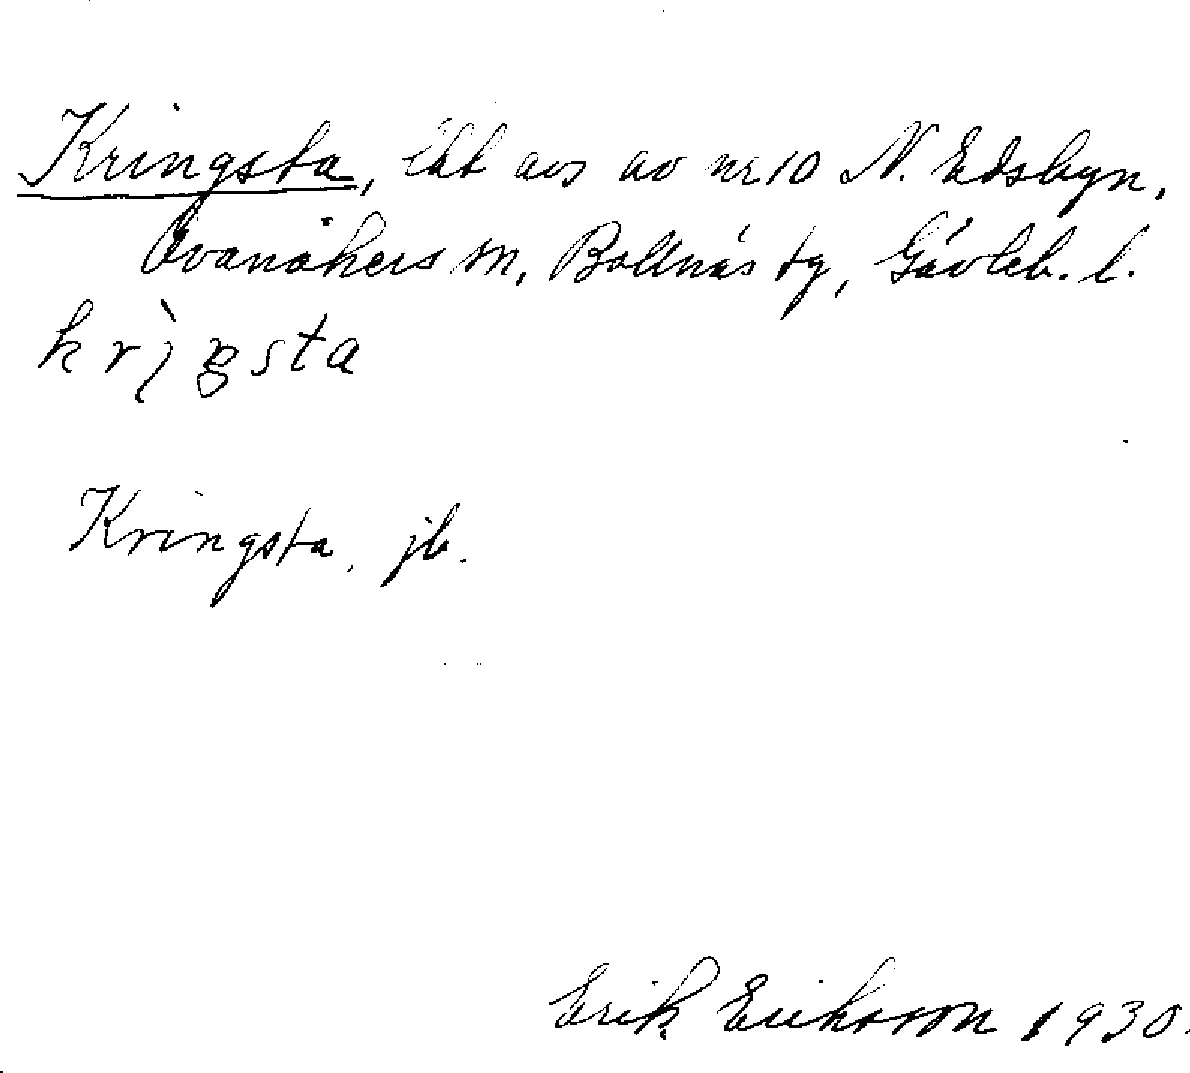 Kringsta, lht avs av nr 10 N. Edsbyn,
Ovanåkers sn, Bollnäs tg, Gävleb. l.
krı̀ŋsta
Kringsta, jb.
Erik Eriksson 1930.